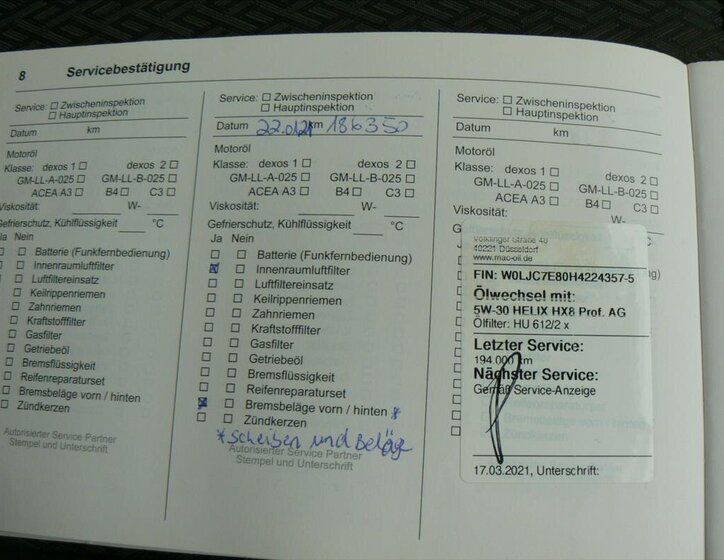 8 Servicebestätigung
Service: ☐ Zwischeninspektion
☐ Hauptinspektion
Datum km
Motoröl
Klasse: dexos 1 ☐ dexos 2 ☐
GM-LL-A-025 ☐ GM-LL-B-025 ☐
ACEA A3 ☐ B4 ☐ C3 ☐
Viskosität: W-
Gefrierschutz, Kühlflüssigkeit °C
Ja Nein
☐ ☐ Batterie (Funkfernbedienung)
☐ ☐ Innenraumluftfilter
☐ ☐ Luftfiltereinsatz
☐ ☐ Keilrippenriemen
☐ ☐ Zahnriemen
☐ ☐ Kraftstofffilter
☐ ☐ Gasfilter
☐ ☐ Getriebeöl
☐ ☐ Bremsflüssigkeit
☐ ☐ Reifenreparaturset
☐ ☐ Bremsbeläge vorn / hinten
☐ ☐ Zündkerzen
Autorisierter Service Partner
Stempel und Unterschrift
Service: ☐ Zwischeninspektion
☐ Hauptinspektion
Datum 22.01.21 km 186350
Motoröl
Klasse: dexos 1 ☐ dexos 2 ☐
GM-LL-A-025 ☐ GM-LL-B-025 ☐
ACEA A3 ☐ B4 ☐ C3 ☐
Viskosität: W-
Gefrierschutz, Kühlflüssigkeit °C
Ja Nein
☐ ☐ Batterie (Funkfernbedienung)
☒ ☐ Innenraumluftfilter
☐ ☐ Luftfiltereinsatz
☐ ☐ Keilrippenriemen
☐ ☐ Zahnriemen
☐ ☐ Kraftstofffilter
☐ ☐ Gasfilter
☐ ☐ Getriebeöl
☐ ☐ Bremsflüssigkeit
☐ ☐ Reifenreparaturset
☒ ☐ Bremsbeläge vorn / hinten *
☐ ☐ Zündkerzen
* Scheiben und Beläge
Autorisierter Service Partner
Stempel und Unterschrift
Service: ☐ Zwischeninspektion
☐ Hauptinspektion
Datum km
Motoröl
Klasse: dexos 1 ☐ dexos 2 ☐
GM-LL-A-025 ☐ GM-LL-B-025 ☐
ACEA A3 ☐ B4 ☐ C3 ☐
Viskosität: W-
40221 Düsseldorf
www.mac-oil.de
FIN: W0LJC7E80H4224357-5
Ölwechsel mit:
5W-30 HELIX HX8 Prof. AG
Ölfilter: HU 612/2 x
Letzter Service:
194.000 km
Nächster Service:
Gemäß Service-Anzeige
17.03.2021, Unterschrift: